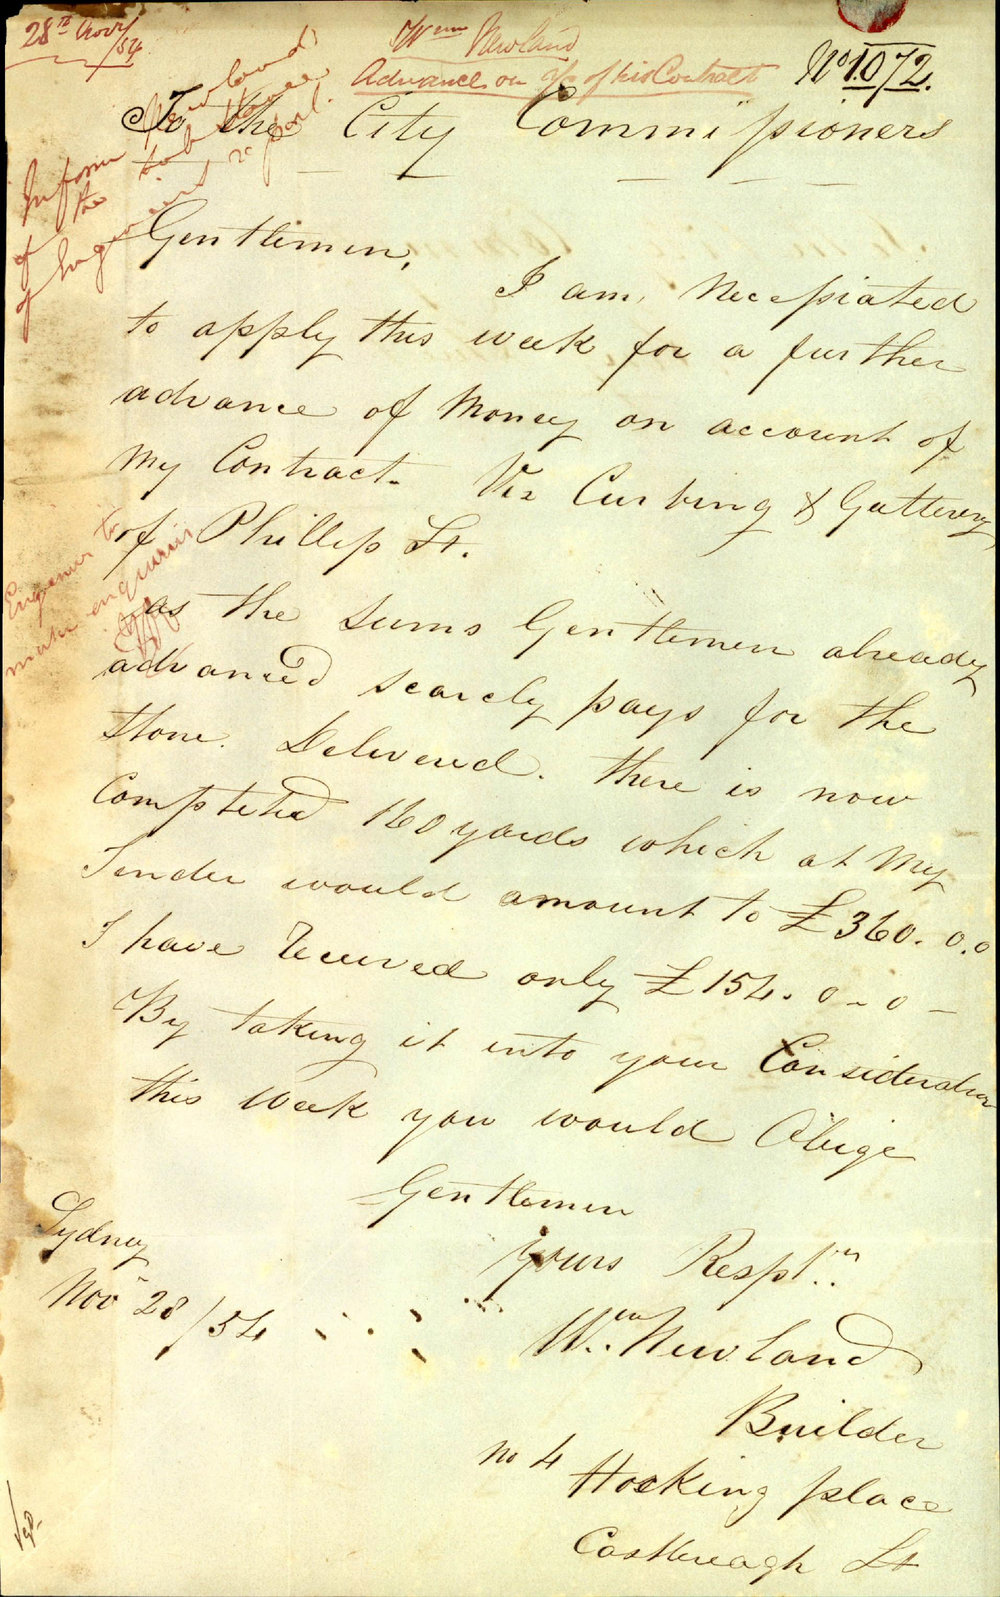 28th Novr/54
Wm Newland
Advance on a/c of his Contract
No 1072.
To the City Commissioners
Inform Newland
of the to be
of Engineer's
Gentlemen,
I am, Necessiated
to apply this week for a further
advance of Money on account of
My Contract. Viz Curbing & Guttering
of Phillip St.
Engineer to
make enquiries
as the Sums Gentlemen already
advanced scarcly pays for the
Stone. Delivered. there is now
Completed 160 yards which at My
Tender would amount to £360.0.0
I have Received only £154.0-0-
By taking it into your Consideration
this Week you would Oblige
Gentlemen
Yours Resply
Wm. Newland
Builder
no 4 Hocking place
Castlereagh St
Sydney
Nov 28/54